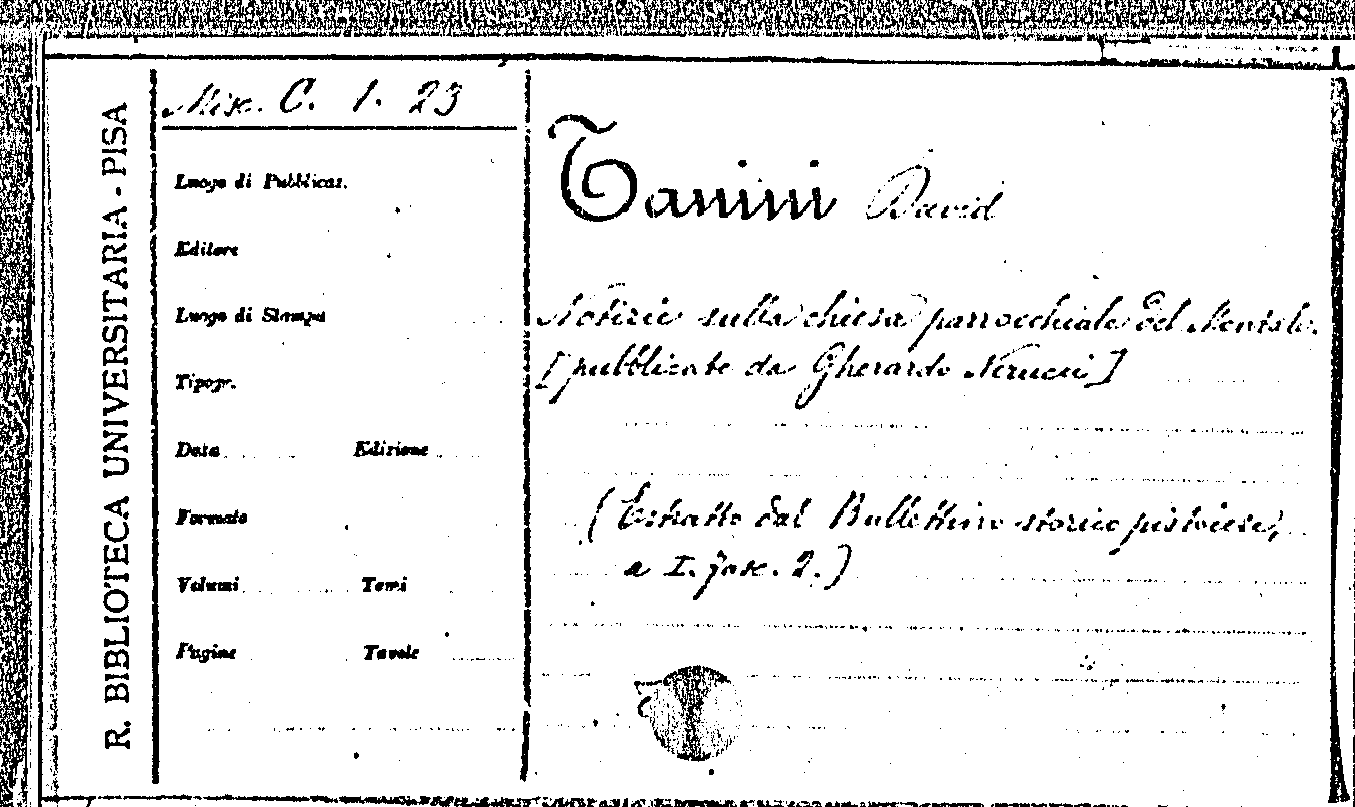 R. BIBLIOTECA UNIVERSITARIA - PISA
Misc. C. 1. 23
Luogo di Pubblicaz.
Editore
Luogo di Stampa
Tipogr.
Data Edizione
Formato
Volumi Tomi
Pagine Tavole
Tanini David
Notizie sulla chiesa parrocchiale del Montale.
[pubblicate da Gherardo Nerucci]
(Estratto dal Bullettino storico pistoiese,
a I. fasc. 2.)